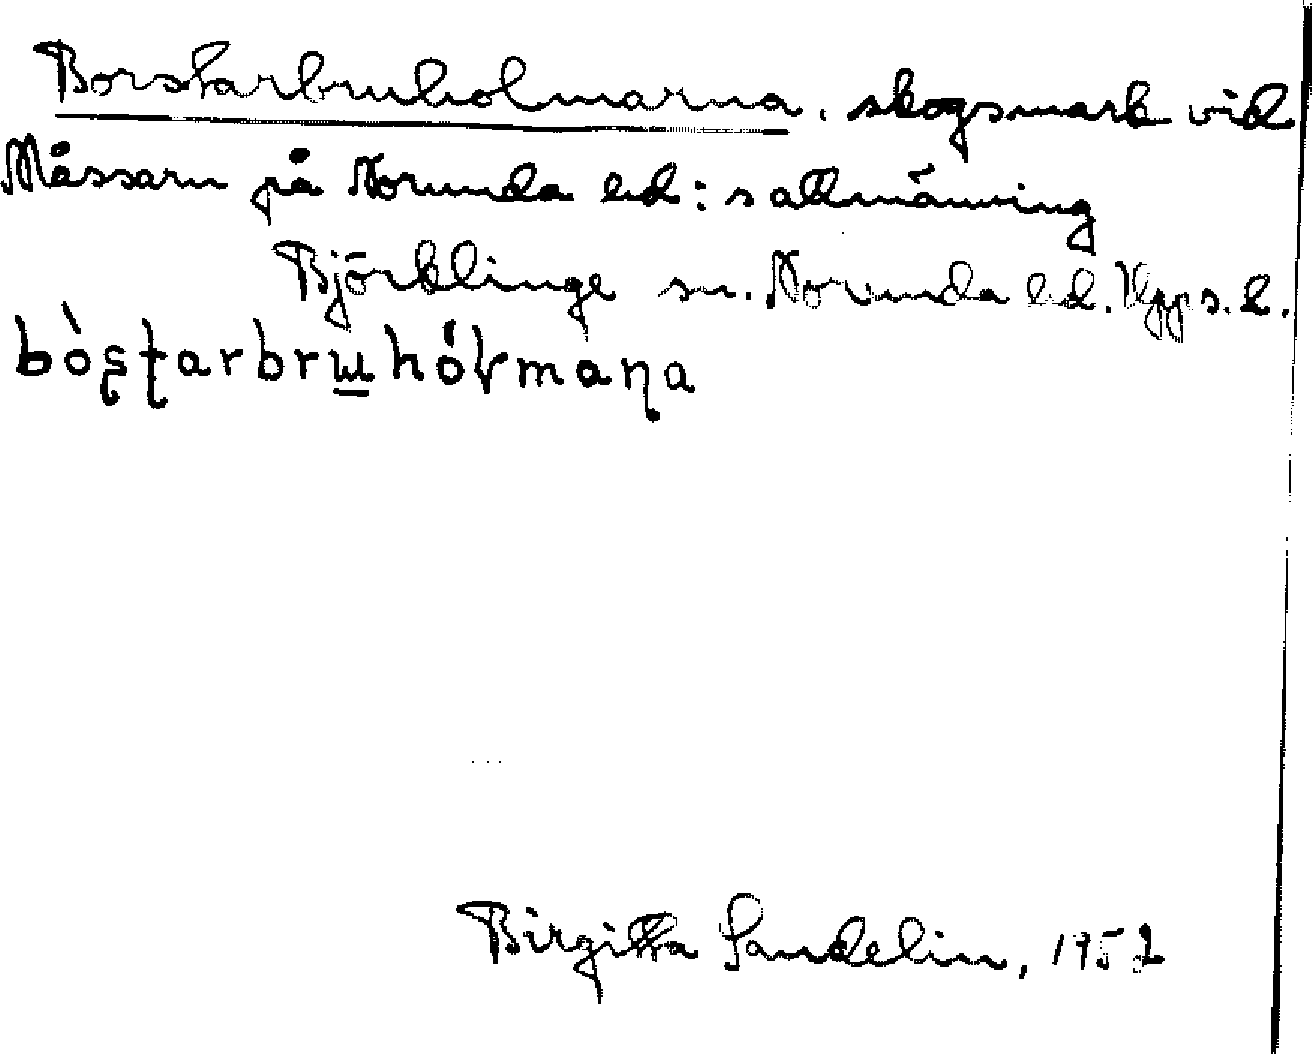 Borstarbruholmarna. skogsmark vid
Måssarn på Norunda hd:s allmänning
Björklinge sn. Norunda hd. Upps. l.
bòʂʈarbrɯhóɽmaɳa
Birgitta Sandelin, 1952